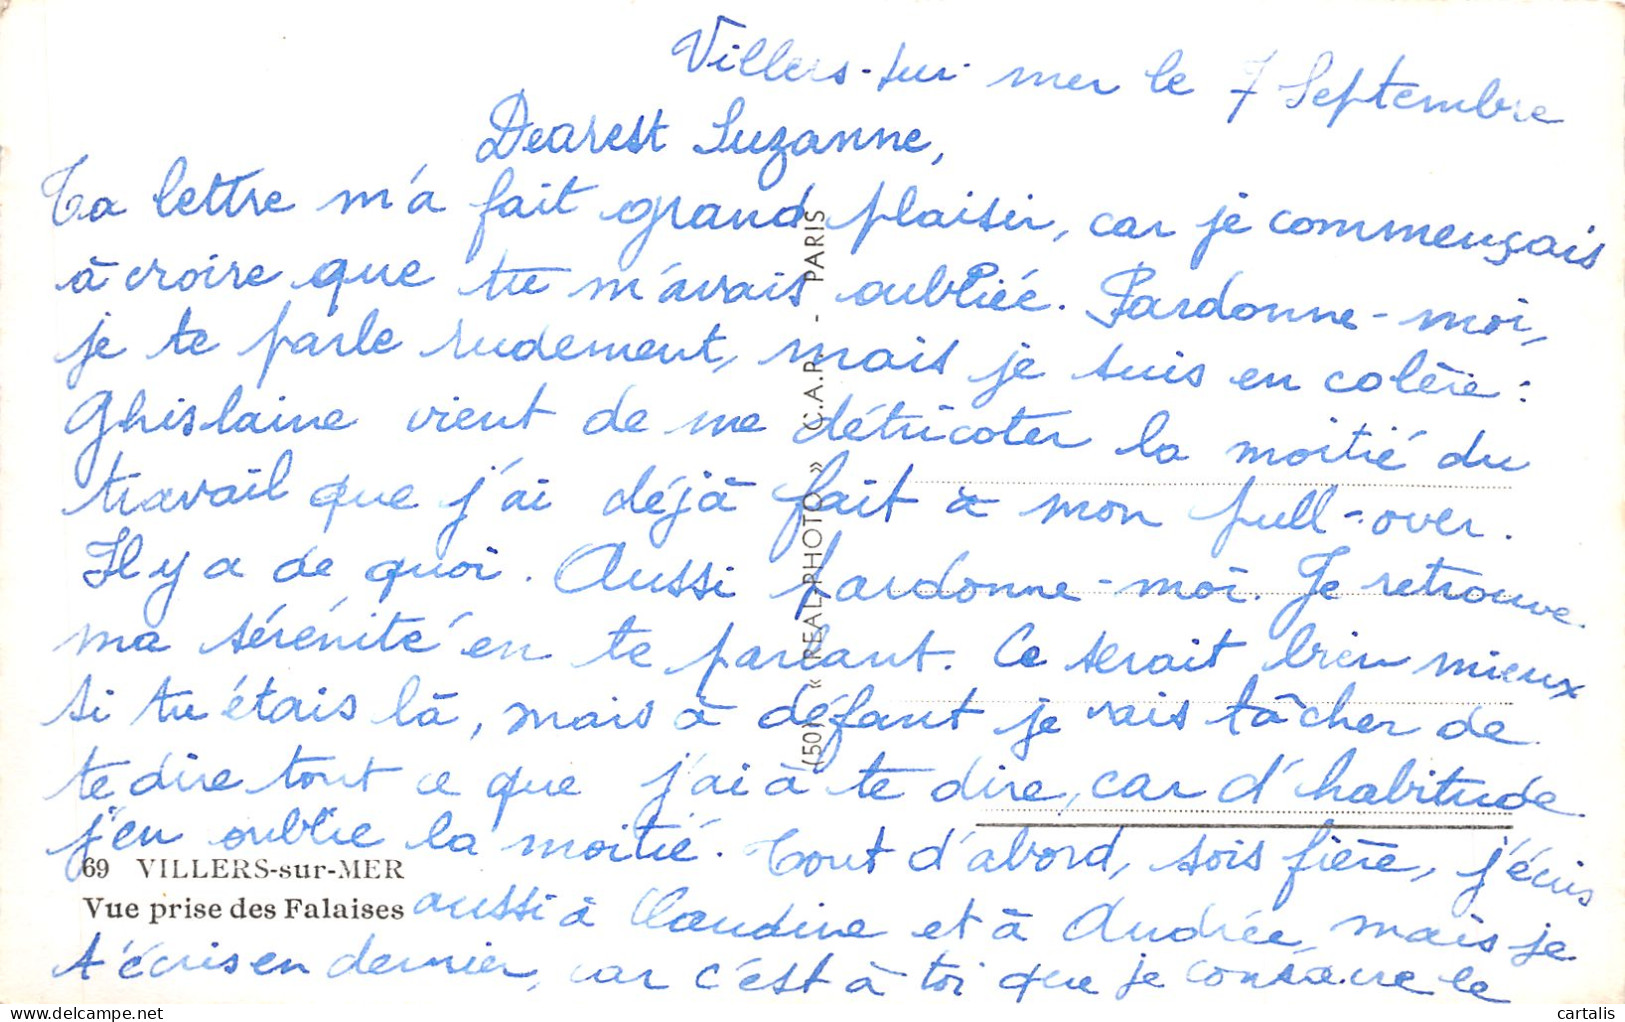 Villers-sur-mer le 7 Septembre
Dearest Suzanne,
Ta lettre m'a fait grand plaisir, car je commençais
à croire que tu m'avais oubliée. Pardonne-moi,
je te parle rudement, mais je suis en colère :
Ghislaine vient de me détricoter la moitié du
travail que j'ai déjà fait à mon pull-over.
Il y a de quoi. Aussi pardonne-moi. Je retrouve
ma sérénité en te parlant. Ce serait bien mieux
si tu étais là, mais à défaut je vais tâcher de
te dire tout ce que j'ai à te dire, car d'habitude
j'en oublie la moitié. Tout d'abord, sois fière, j'écris
aussi à Claudine et à Andrée, mais je
t'écris en dernier, car c'est à toi que je consacre le
69 VILLERS-sur-MER
Vue prise des Falaises
(50) « REAL-PHOTO » C.A.P. - PARIS
cartalis